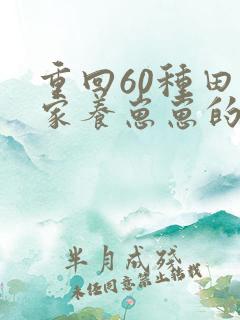 重回60種田
家养崽崽的
半月成殘
未经同意禁止转载